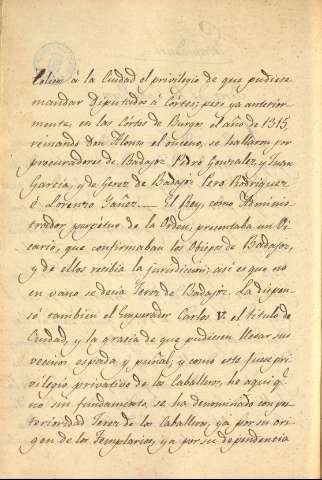 à la Ciudad el privilegio de que pudiese
mandar Diputados á Córtes; pero ya anterior-
mente, en las Córtes de Burgos el año de 1315,
reinando Don Alonso el onceno, se hallaron por
procuradores de Badajoz Pedro Gonzalez y Juan
Garcia, y de Gerez de Badajoz Pero Rodriguez
é Lorenzo Yañez.— El Rey, como Adminis-
trador perpétuo de la Orden, presentaba un Vi-
cario, que confirmaban los Obispos de Badajoz,
y de ellos recibia la jurisdiccion; asi es que no
en vano se decia Jerez de Badajoz. La dispen-
só tambien el Emperador Carlos V. el titulo de
Ciudad, y la gracia de que pudiesen llevar sus
vecinos espada y puñal, y como este fuese pri-
vilegio privativo de los Caballeros, he aqui q.e
no sin fundamento, se ha denominado con pos-
terioridad Jerez de los Caballeros, ya por su ori-
gen de los Templarios, ya por su dependencia